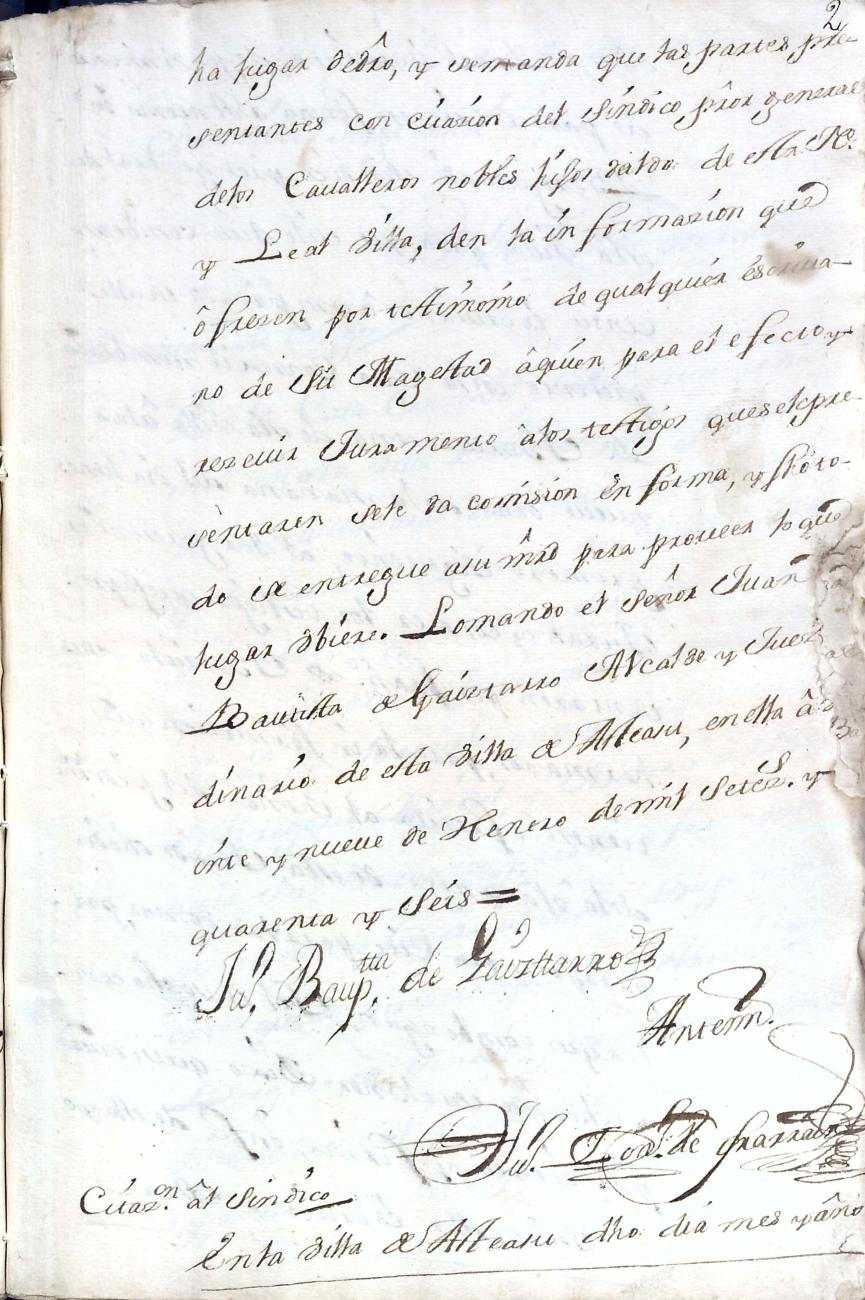 2
ha lugar dedro, y semanda que las partes pre
sentantes con ciuazion del sindico prõr general
delos Cavalleros nobles hijos dealdo de esta N.
y Leal villa, den la informazion que
ôfrezen por testimonio de qualquier escriua-
no de Su Magestad âquien para el efecto y
rezeuir Juramento âlos testigos que se pre-
sentaren sele da comision en forma, y fho to-
do se entregue asu mrd para proueer lo que
lugar vbiere. Lomando el señor Juan
Bautista de Gaiztarro Alcalde y Juez
dinario de esta villa de Asteasu, en ella â
inte y nueue de Henero de mil Setez. y
quarenta y Seis =
Ju.n Baup.tta de Gaizttarro
Antemi.
Ju.n de
Ciuaz.on âl sindico
En la villa de Asteasu dho dia mes y año